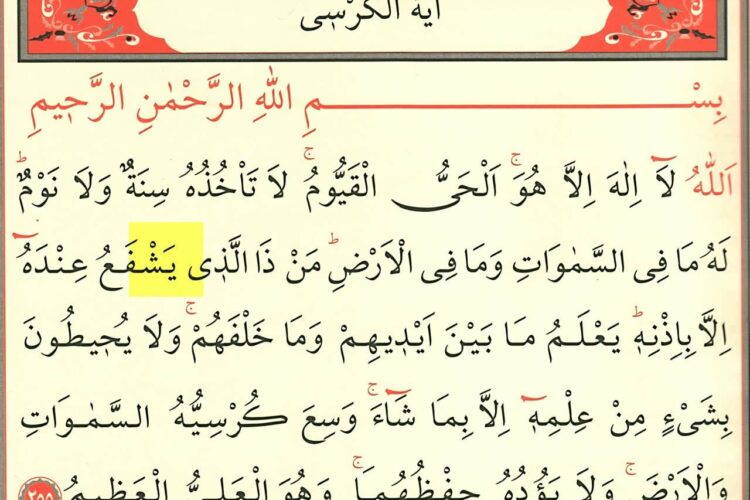 اٰيَةُ الْكُرْسِى
بِسْمِ اللّٰهِ الرَّحْمٰنِ الرَّح۪يمِ
اَللّٰهُ لَٓا اِلٰهَ اِلَّا هُوَۚ اَلْحَىُّ الْقَيُّومُۚ لَا تَاْخُذُهُ سِنَةٌ وَلَا نَوْمٌۜ
لَهُ مَا فِى السَّمٰوَاتِ وَمَا فِى الْاَرْضِۜ مَنْ ذَا الَّذ۪ى يَشْفَعُ عِنْدَهُٓ
اِلَّا بِاِذْنِه۪ۜ يَعْلَمُ مَا بَيْنَ اَيْد۪يهِمْ وَمَا خَلْفَهُمْۚ وَلَا يُح۪يطُونَ
بِشَىْءٍ مِنْ عِلْمِه۪ٓ اِلَّا بِمَا شَٓاءَۚ وَسِعَ كُرْسِيُّهُ السَّمٰوَاتِ
وَالْاَرْضَۚ وَلَا يَؤُ۫دُهُ حِفْظُهُمَاۚ وَهُوَ الْعَلِىُّ الْعَظ۪يمُ ٢٥٥